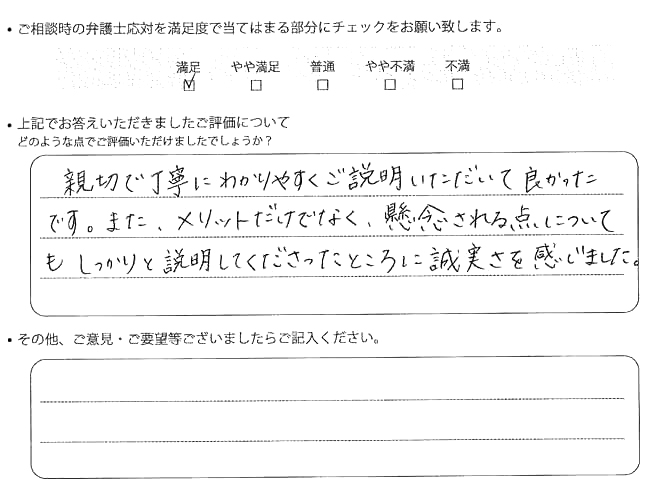 • ご相談時の弁護士応対を満足度で当てはまる部分にチェックをお願い致します。
満足 やや満足 普通 やや不満 不満
☑ □ □ □ □
• 上記でお答えいただきましたご評価について
どのような点でご評価いただけましたでしょうか?
親切で丁寧にわかりやすくご説明いただいて良かった
です。また、メリットだけでなく、懸念される点について
も しっかりと説明してくださったところに誠実さを感じました。
• その他、ご意見・ご要望等ございましたらご記入ください。